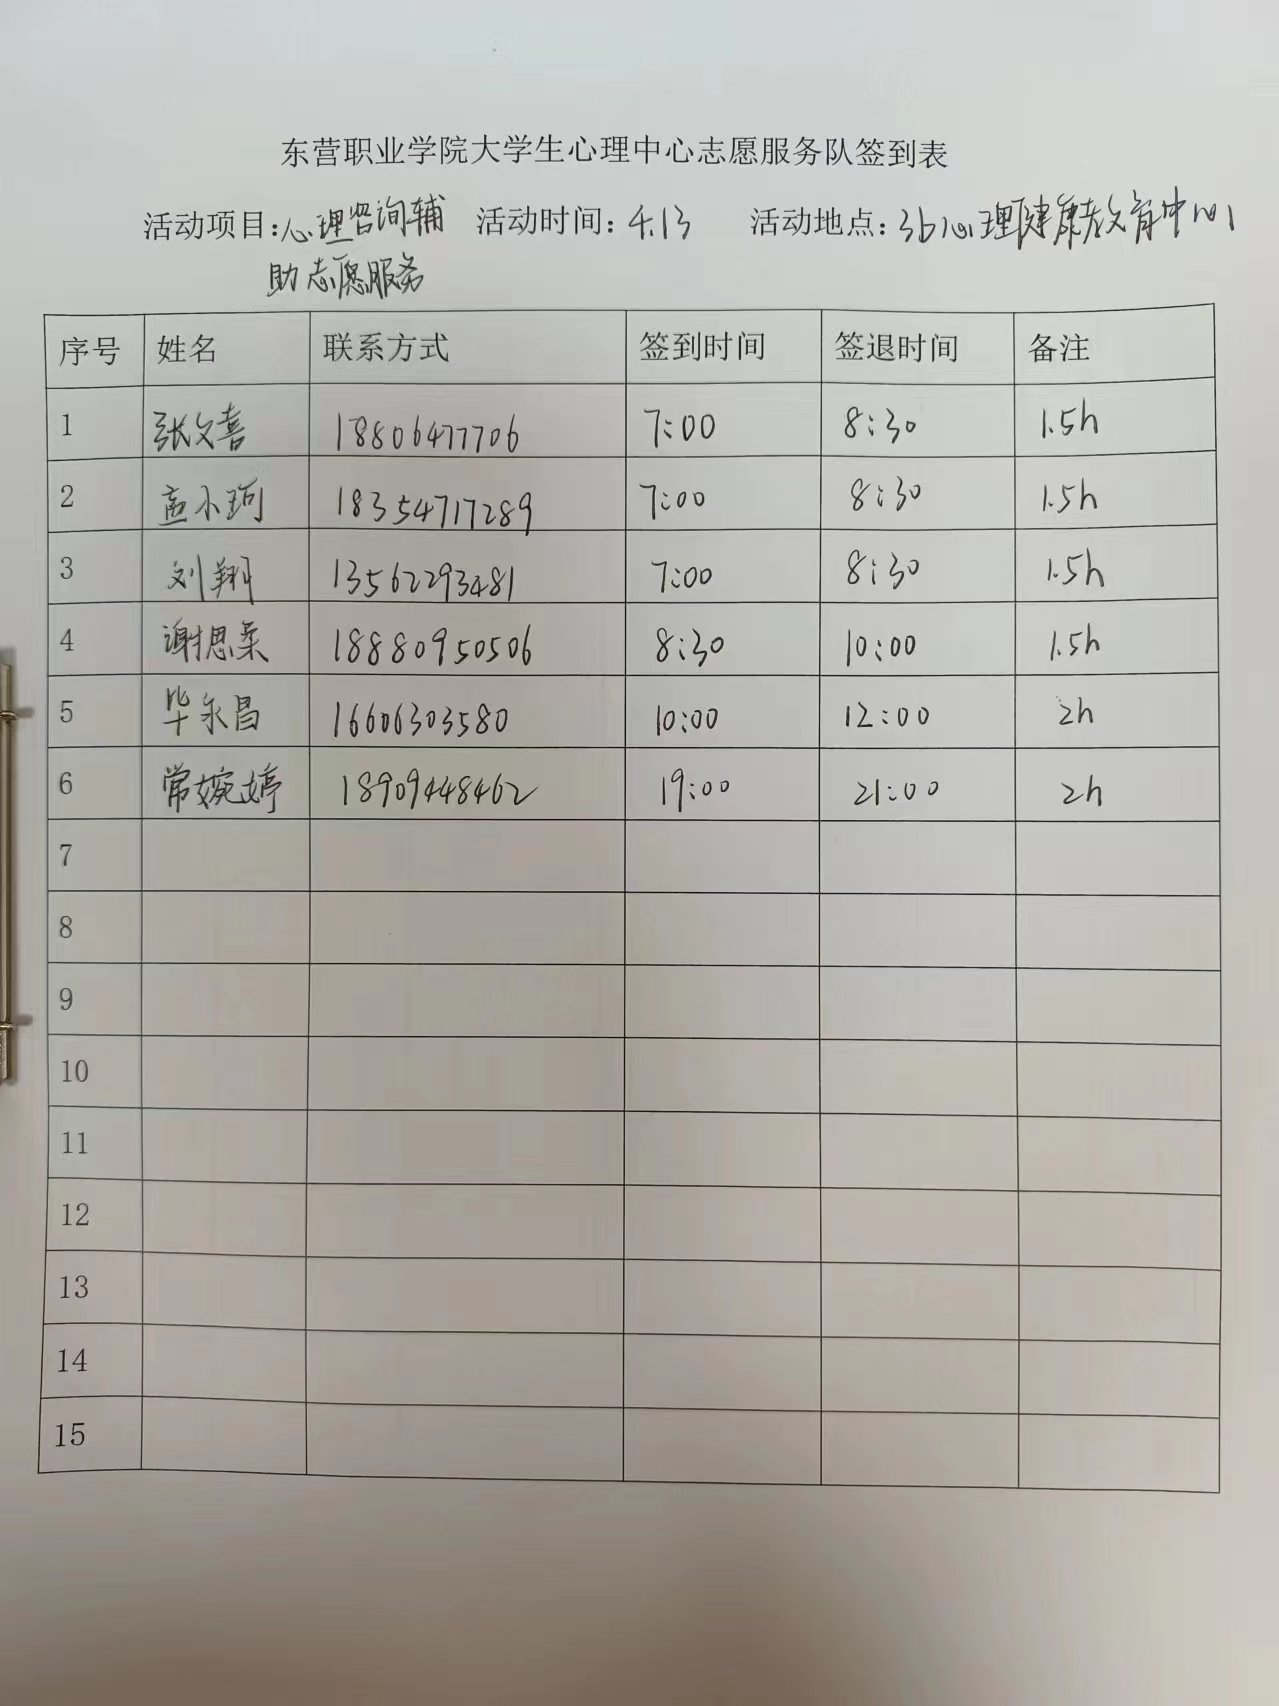 东营职业学院大学生心理中心志愿服务队签到表
活动项目:心理咨询辅 活动时间:4.13 活动地点:3b心理健康教育中心
助志愿服务
序号 姓名 联系方式 签到时间 签退时间 备注
1 张文喜 18806477706 7:00 8:30 1.5h
2 孟小珂 18354717289 7:00 8:30 1.5h
3 刘翔 13562293481 7:00 8:30 1.5h
4 谢思柔 18880950506 8:30 10:00 1.5h
5 毕永昌 16606303580 10:00 12:00 2h
6 常婉婷 18909448462 19:00 21:00 2h
7
8
9
10
11
12
13
14
15